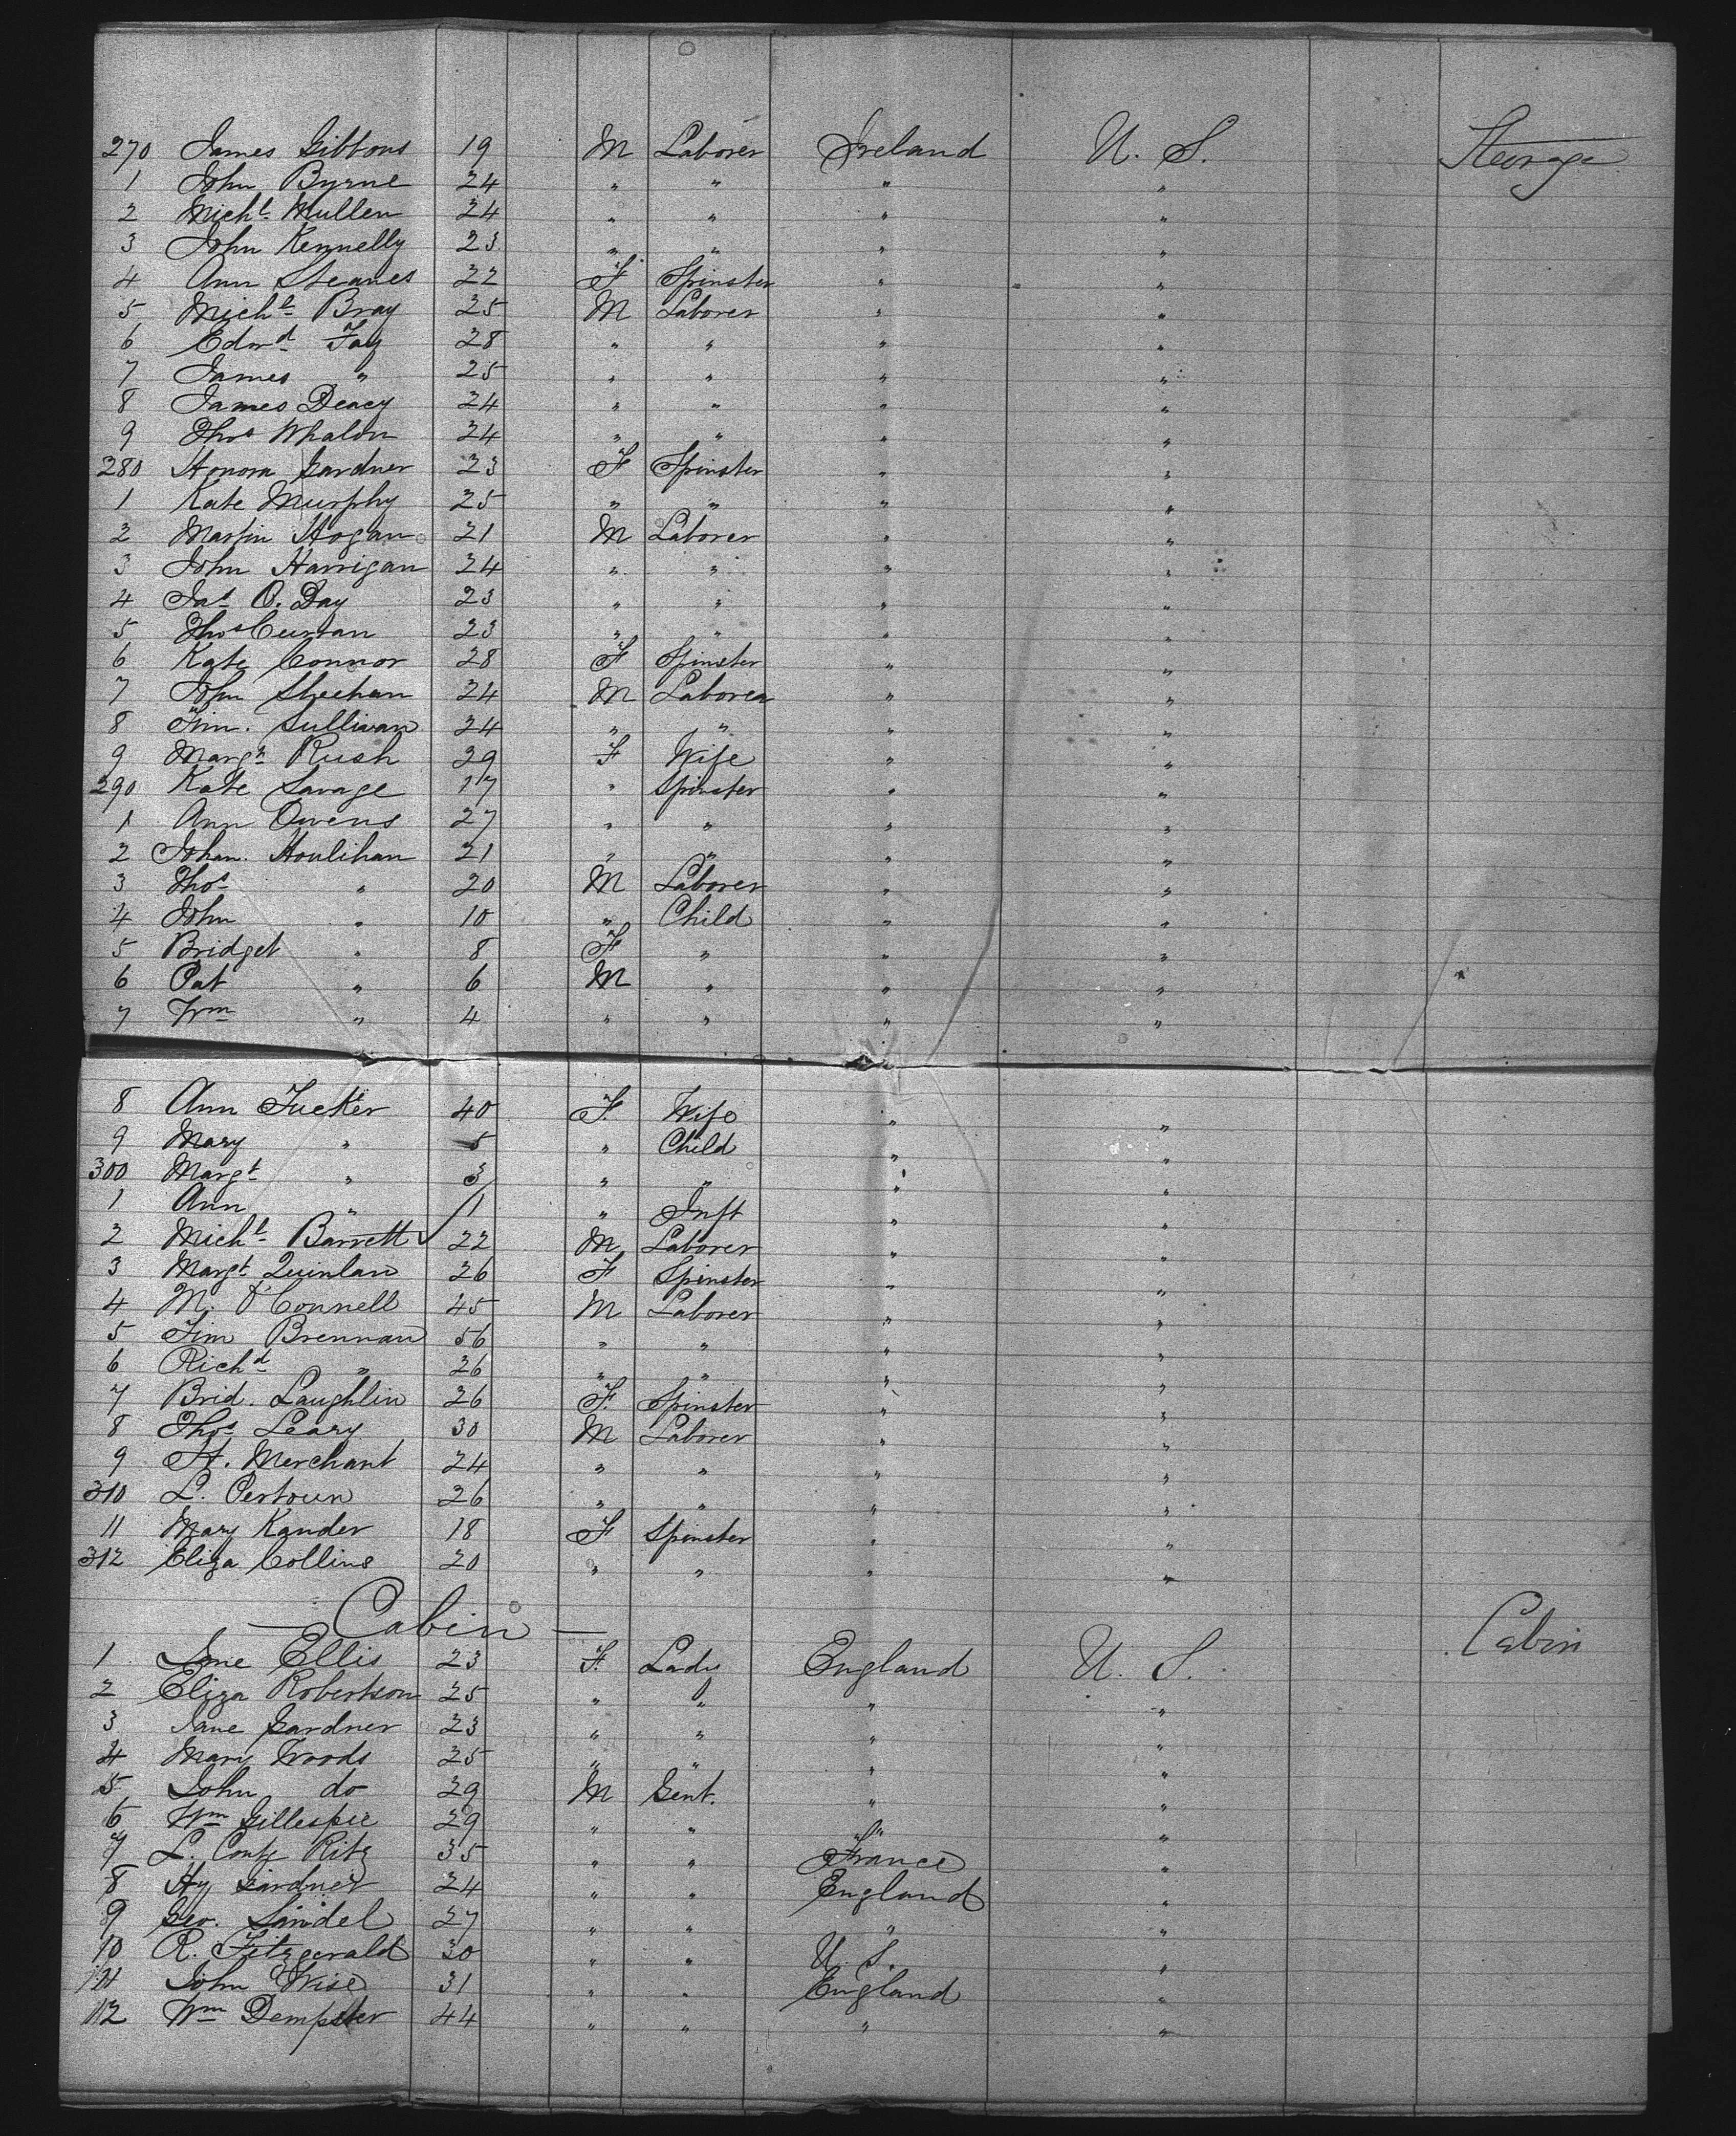 270 James Gibbons 19 M Laborer Ireland U. S. Steerage
1 John Byrne 24 " " " "
2 Michl Mullen 24 " " " "
3 John Kennelly 23 " " " "
4 Ann Steanes 22 F Spinster " "
5 Michl Bray 25 M Laborer " "
6 Edwd Fay 28 " " " "
7 James " 25 " " " "
8 James Deacy 24 " " " "
9 Thos Whalon 24 " " " "
280 Honora Gardner 23 F Spinster " "
1 Kate Murphy 25 " " " "
2 Martin Hogan 21 M Laborer " "
3 John Harrigan 24 " " " "
4 Jas O. Day 23 " " " "
5 Thos Curtan 23 " " " "
6 Kate Connor 28 F Spinster " "
7 John Sheehan 24 M Laborer " "
8 Tim. Sullivan 24 " " " "
9 Margt Rush 29 F Wife " "
290 Kate Savage 17 " Spinster " "
1 Ann Owens 27 " " " "
2 Johan. Houlihan 21 " " " "
3 Thos " 20 M Laborer " "
4 John " 10 " Child " "
5 Bridget " 8 F " " "
6 Pat " 6 M " " "
7 Wm " 4 " " " "
8 Ann Tucker 40 F. Wife " "
9 Mary " 5 " Child " "
300 Margt " 3 " " " "
1 Ann " 1 " Inft " "
2 Michl Barrett 22 M Laborer " "
3 Margt Quinlan 26 F Spinster " "
4 M. O'Connell 45 M Laborer " "
5 Tim Brennan 56 " " " "
6 Richd " 26 " " " "
7 Brid. Laughlin 26 F. Spinster " "
8 Thos Leary 30 M Laborer " "
9 H. Merchant 24 " " " "
310 L. Pertoun 26 " " " "
11 Mary Kander 18 F Spinster " "
312 Eliza Collins 20 " " " "
— Cabin —
1 Jane Ellis 23 F. Lady England U. S. Cabin
2 Eliza Robertson 25 " " " "
3 Jane Gardner 23 " " " "
4 Mary Woods 25 " " " "
5 John do 29 M Gent. " "
6 Wm Gillespie 29 " " " "
7 L. Ritz 35 " " France "
8 Hy Gardner 24 " " England "
9 Geo. Sandel 27 " " " "
10 R. Fitzgerald 30 " " U. S. "
11 John Wise 31 " " England "
12 Wm Dempster 44 " " " "